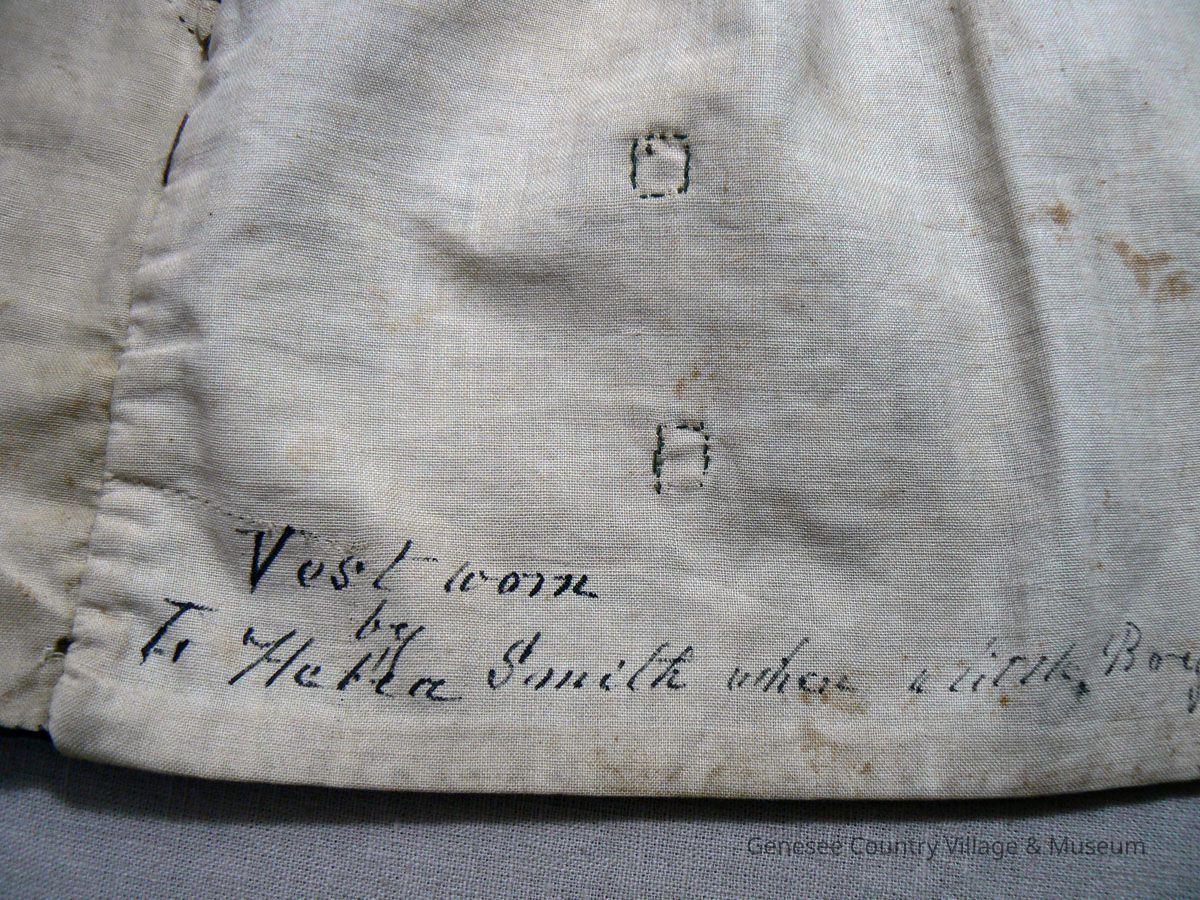 Vest worn
by
To Smith when a little Boy
Genesee Country Village & Museum